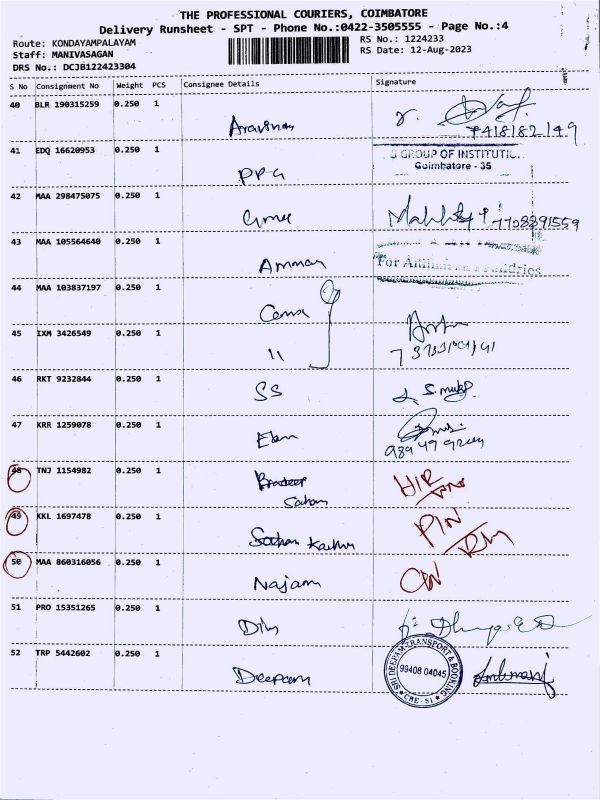 THE PROFESSIONAL COURIERS, COIMBATORE
Delivery Runsheet - SPT - Phone No.:0422-3505555 - Page No.:4
Route: KONDAYAMPALAYAM
Staff: MANIVASAGAN
DRS No.: DCJB122423304
RS No.: 1224233
RS Date: 12-Aug-2023
S No Consignment No Weight PCS Consignee Details Signature
40 BLR 190315259 0.250 1
7418182149
41 EDQ 16620953 0.250 1 PPG
GROUP OF INSTITUTI
Coimbatore - 35
42 MAA 298475075 0.250 1
7708891559
43 MAA 105564640 0.250 1 Amman
For
44 MAA 103837197 0.250 1
45 IXM 3426549 0.250 1 11
46 RKT 9232844 0.250 1 SS
47 KRR 1259078 0.250 1
48 TNJ 1154982 0.250 1 Pradeep
49 KKL 1697478 0.250 1
50 MAA 860316056 0.250 1 Najam
51 PRO 15351265 0.250 1
52 TRP 5442602 0.250 1 Deepam
SRI DEEPAM TRANSPORT & BOOKING
99408 04045
CBE-51